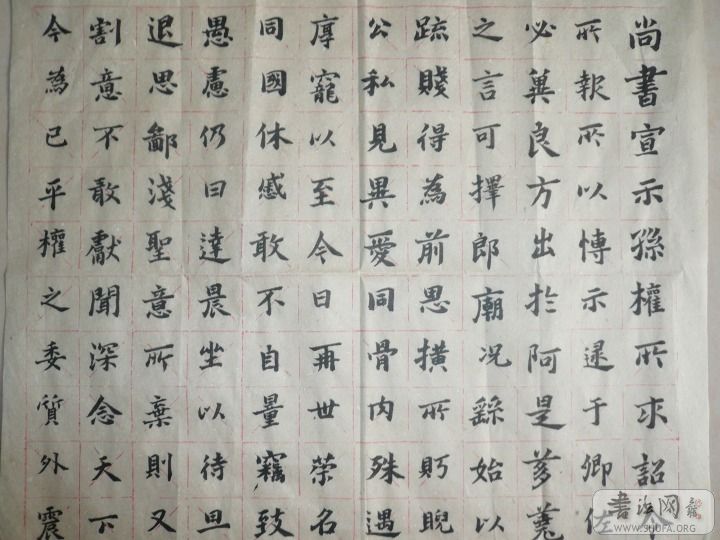 尚書宣示孫權所求詔
所報所以博示逮于卿佐
必冀良方出於阿是芻蕘
之言可擇郎廟況繇始以
疏賤得為前恩横所眄睨
公私見異愛同骨肉殊遇
厚寵以至今日再世荣名
同國休慼敢不自量竊致
愚慮仍日達晨坐以待旦
退思鄙淺聖意所棄則又
割意不敢獻聞深念天下
今為已平權之委質外震
書法网
WWW.SHUFA.ORG